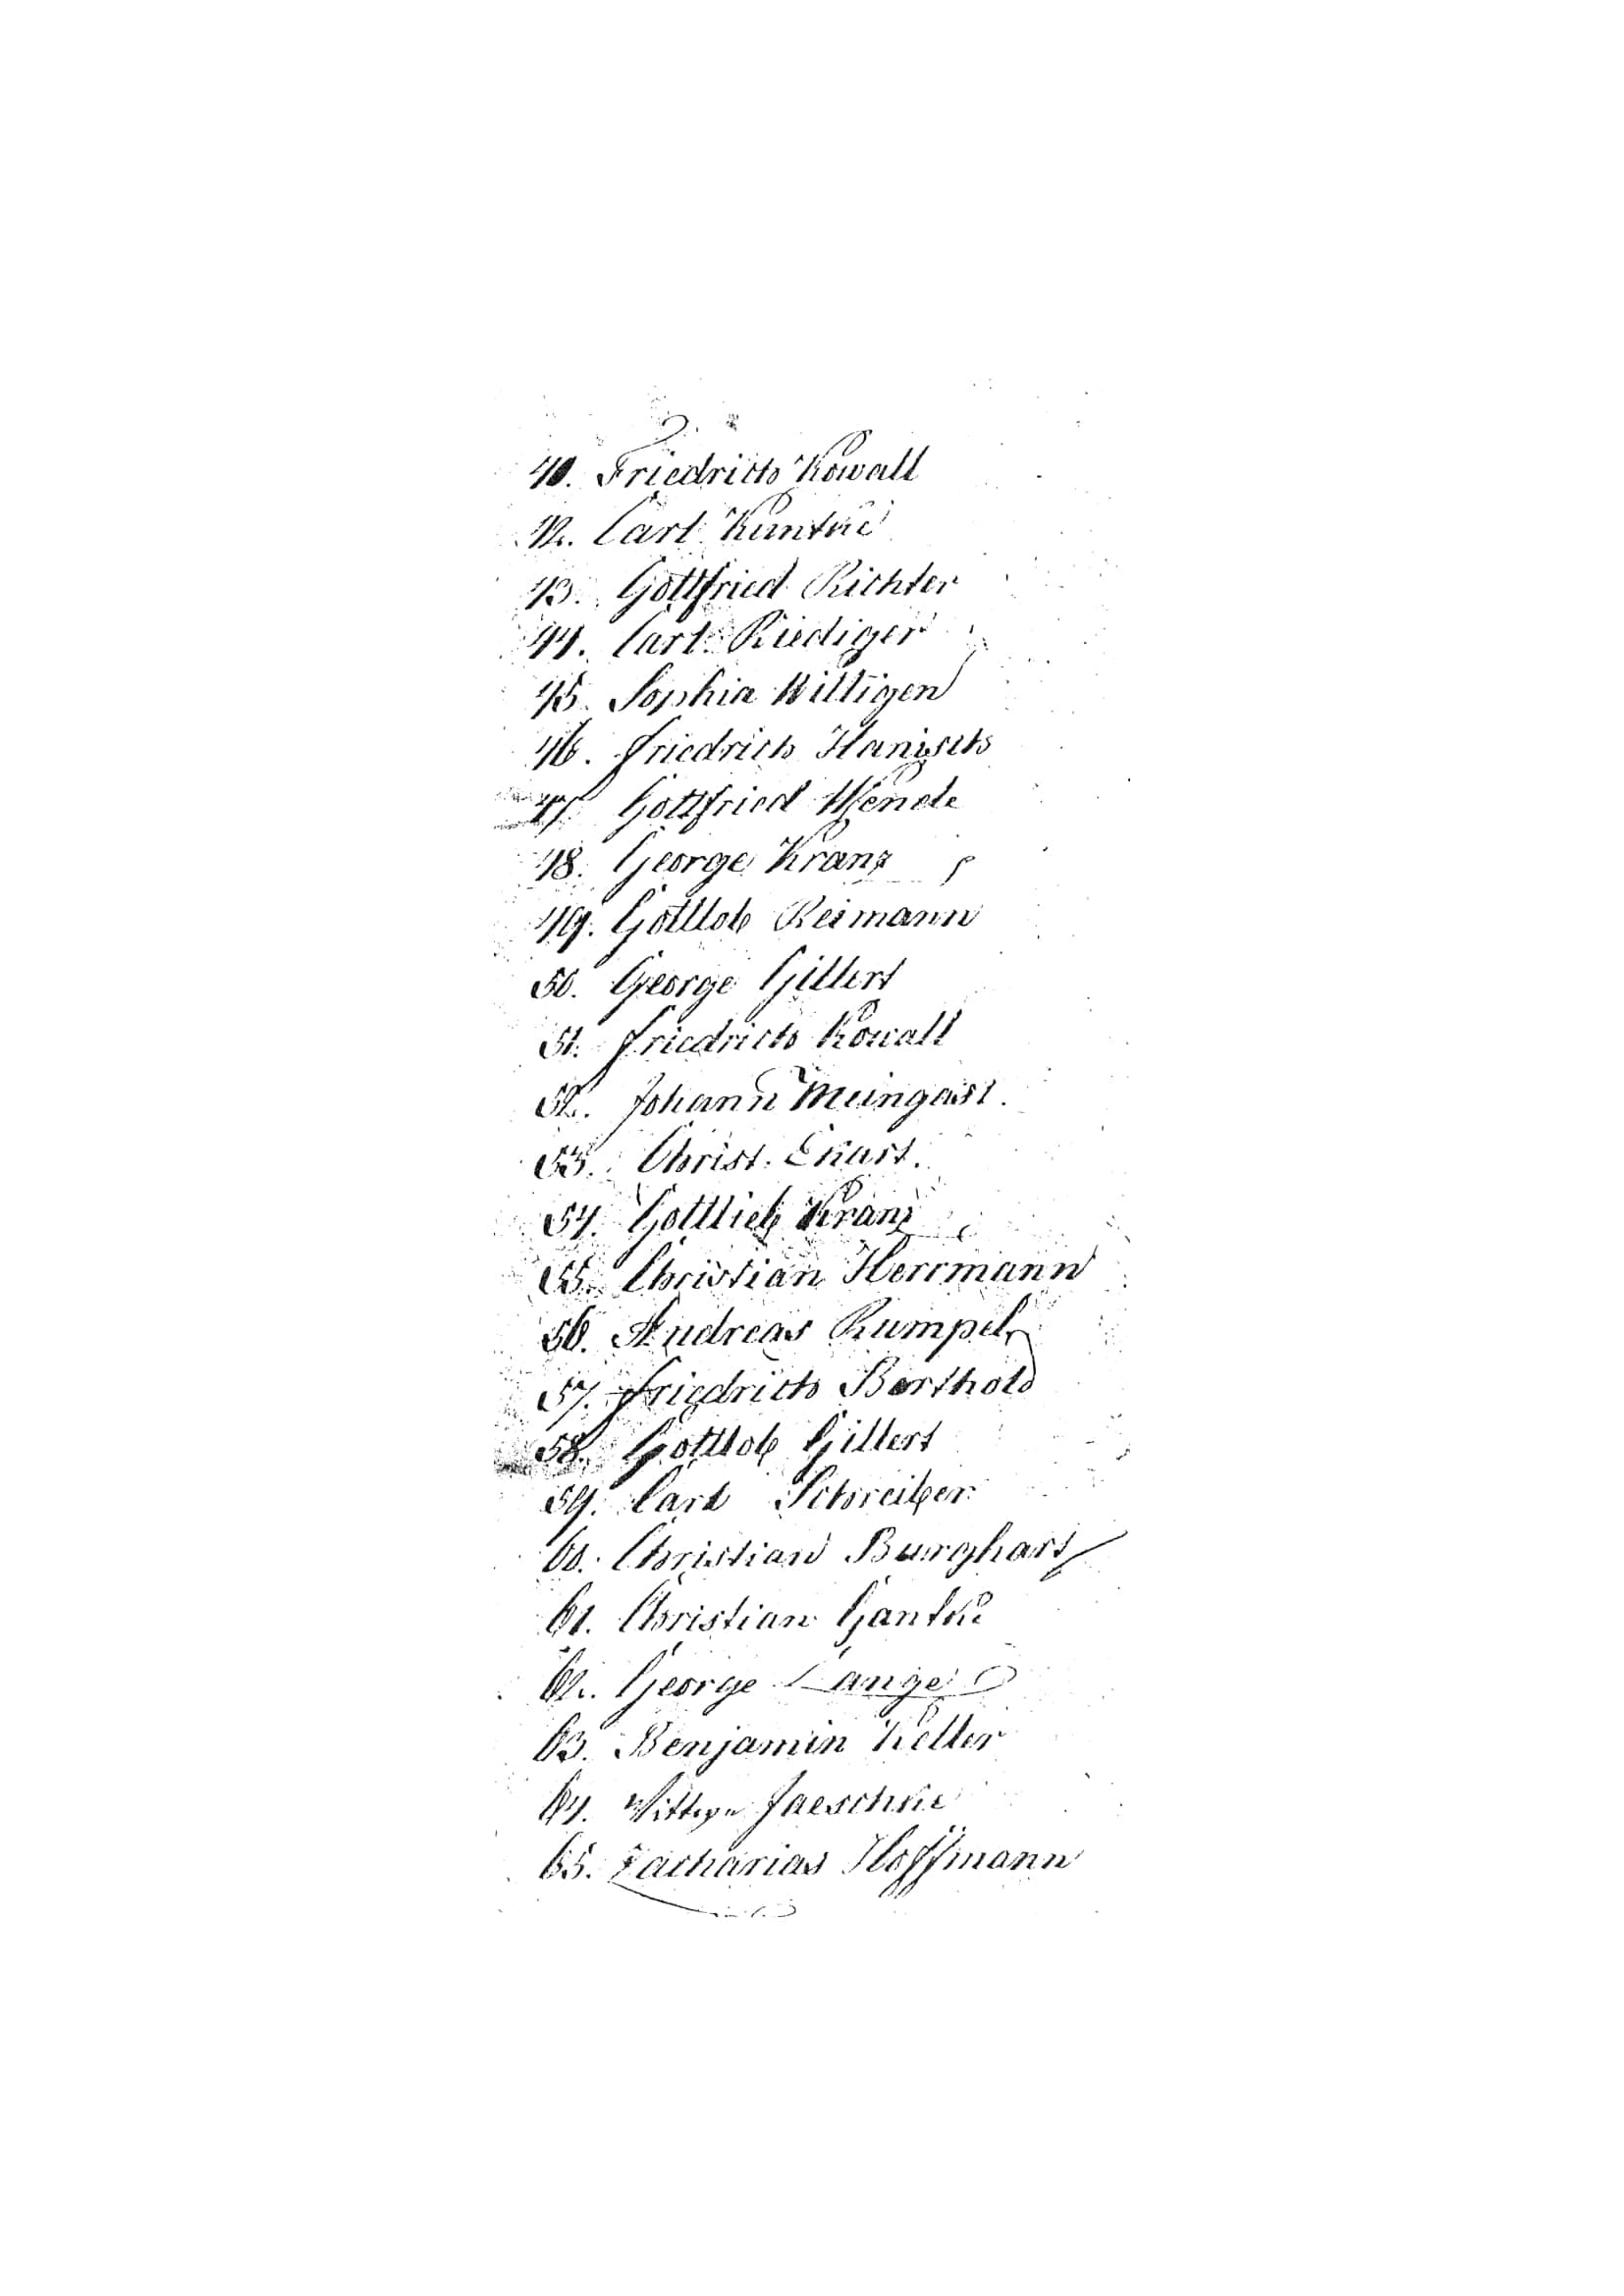 40. Friedrich Kowall
42. Carl Kuntke
43. Gottfried Richter
44. Carl Riediger
45. Sophia Willigen
46. Friedrich Hanisch
47. Gottfried Wende
48. George Kranz
49. Gottlob Reimann
50. George Gillert
51. Friedrich Kowall
52. Johann Meingast.
53. Christ. Ekart.
54. Gottlieb Kranz
55. Christian Herrmann
56. Andreas Rumpel
57. Friedrich Barthold
58. Gottlob Gillert
59. Carl Schreiber
60. Christian Burghart
61. Christian Gantke
62. George Lange
63. Benjamin Keller
64. Jaeschke
65. Zacharias Hoffmann